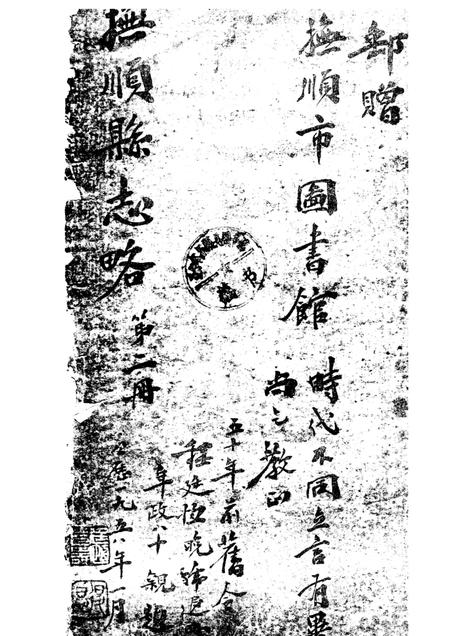 郵贈
撫順市圖書館
時代不同立言有異
尚乞教正
五十年前舊令
程廷恒晚號
八十親題
撫順縣志略
第二冊
公歷一九五八年一月